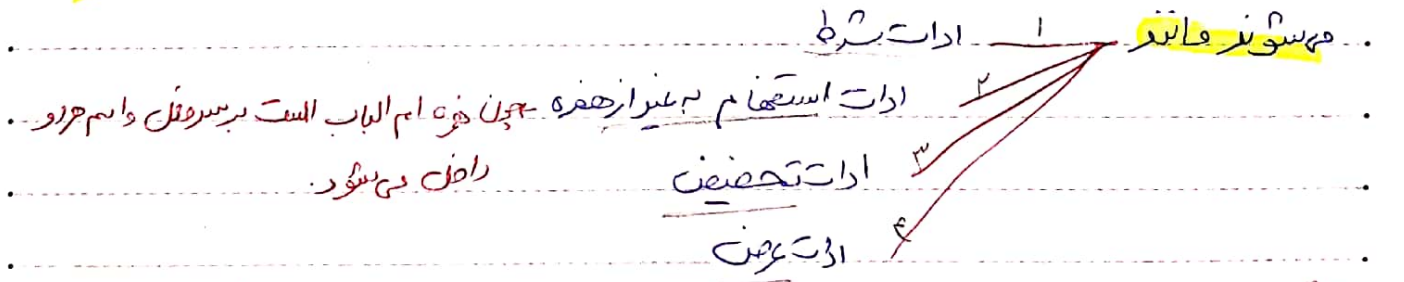 می‌شوند مانند ۱ ادات شرط
۲ ادات استفهام به غیر از همزه - چون همزه ام الباب است بر سر فعل و اسم هر دو
داخل می‌شود.
۳ ادات تحضیض
۴ ادات عرض